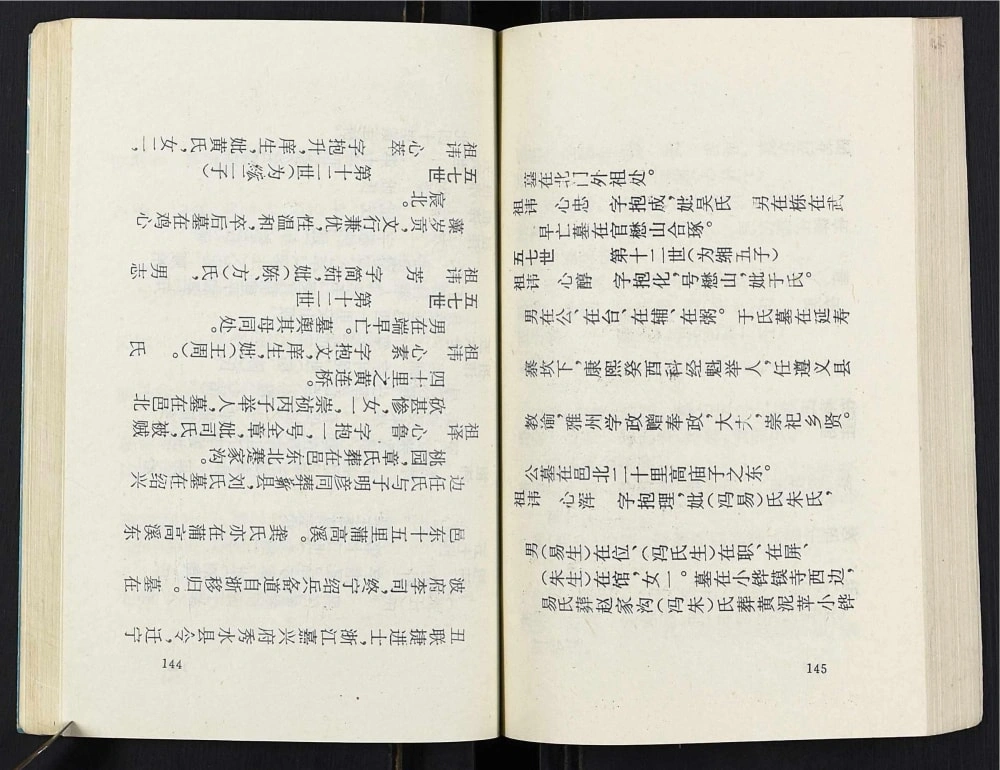 丑联捷进士，浙江嘉兴府秀水县令，迁宁
波府李司，终宁绍兵备道自浙归移。墓在
邑东十五里蒲高溪。龚氏亦在蒲高溪东
边任氏与子明彦同葬县，刘氏墓在绍兴
桃园，章氏葬在邑东北蹇家沟。
祖译 心鲁 字抱一，号全章，妣司氏，被贼
砍甚惨，女一，崇祯丙子举人，墓在邑北
四十里之黄连桥。
祖讳 心素 字抱文，庠生，妣（王周）。氏
男在端早亡。墓與其母同处。
五七世 第十二世
祖讳 芳 字简茹，妣（陈方）氏，男志
藻岁贡，文行兼优性温和，卒后墓在鸡心
宸北。
五七世 第十二世（为二子）
祖讳 心萃 字抱升，庠生，妣黄氏，女一，
144
墓在北门外祖处。
祖讳 心忠 字抱成，妣吴氏 男在栋在武
早亡墓在官懋山合琢。
五七世 第十二世（为缃五子）
祖讳 心醇 字抱化，号懋山，妣于氏。
男在公、在台、在辅、在粥。于氏墓在延寿
寨坎下，康熙癸酉科经魁举人，任遵义县
教谕，雅州学政赠奉政，大夫，崇祀乡贤。
公墓在邑北二十里高庙子之东。
祖讳 心浑 字抱理，妣（冯易）氏朱氏，
男（易生）在位、（冯氏生）在职、在屏、
（朱生）在馆，女一。墓在小铧镇寺西边，
易氏葬赵家沟（冯朱）氏葬黄泥苹小铧
145